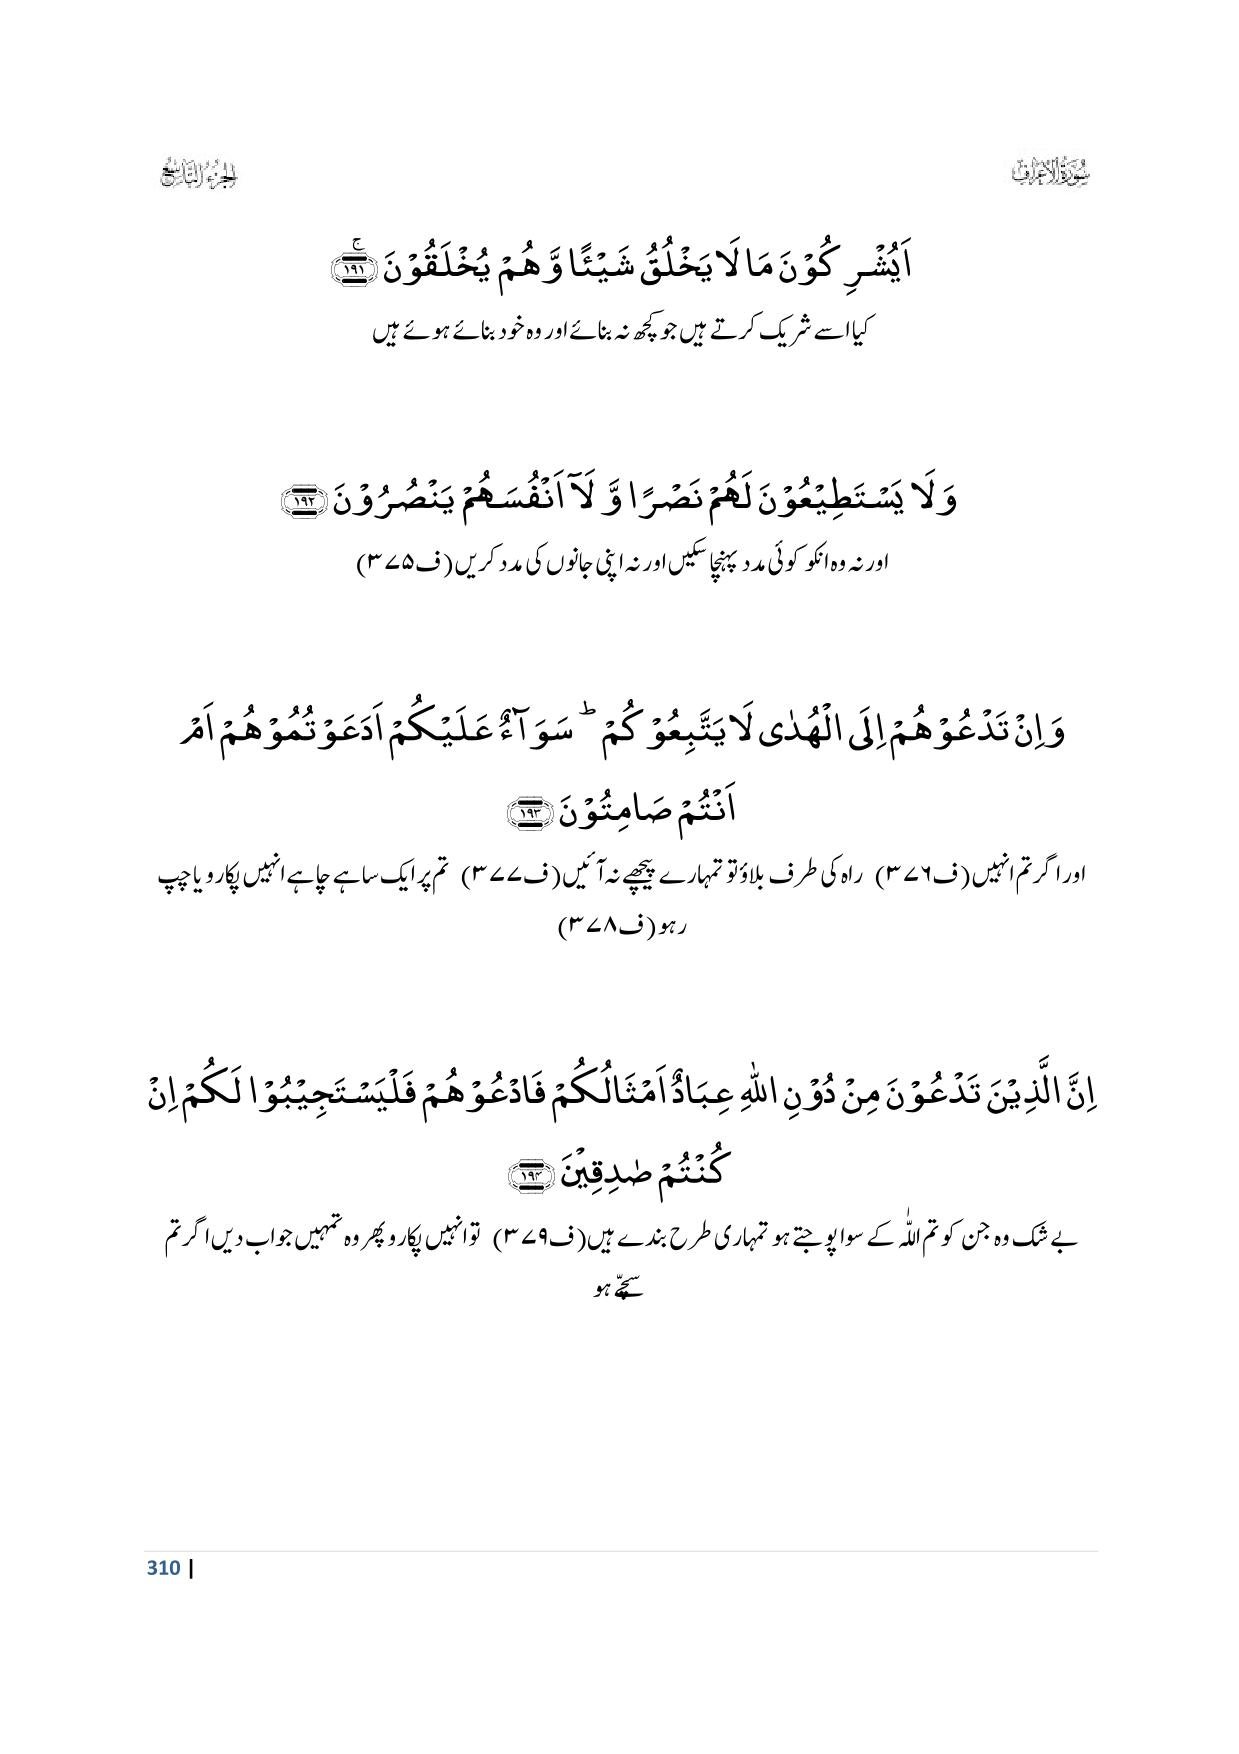 سُورَةُ الْأَعْرَاف
الْجُزْءُ التَّاسِعُ
اَيُشْرِكُوْنَ مَا لَا يَخْلُقُ شَيْئًا وَّ هُمْ يُخْلَقُوْنَ ۚ﴿۱۹۱﴾
کیا اسے شریک کرتے ہیں جو کچھ نہ بنائے اور وہ خود بنائے ہوئے ہیں
وَ لَا يَسْتَطِيْعُوْنَ لَهُمْ نَصْرًا وَّ لَاۤ اَنْفُسَهُمْ يَنْصُرُوْنَ ﴿۱۹۲﴾
اور نہ وہ انکو کوئی مدد پہنچا سکیں اور نہ اپنی جانوں کی مدد کریں (ف۳۷۵)
وَ اِنْ تَدْعُوْهُمْ اِلَى الْهُدٰى لَا يَتَّبِعُوْكُمْ ؕ سَوَآءٌ عَلَيْكُمْ اَدَعَوْتُمُوْهُمْ اَمْ
اَنْتُمْ صَامِتُوْنَ ﴿۱۹۳﴾
اور اگر تم انہیں (ف۳۷۶) راہ کی طرف بلاؤ تو تمہارے پیچھے نہ آئیں (ف۳۷۷) تم پر ایک سا ہے چاہے انہیں پکارو یا چپ
رہو (ف۳۷۸)
اِنَّ الَّذِيْنَ تَدْعُوْنَ مِنْ دُوْنِ اللّٰهِ عِبَادٌ اَمْثَالُكُمْ فَادْعُوْهُمْ فَلْيَسْتَجِيْبُوْا لَكُمْ اِنْ
كُنْتُمْ صٰدِقِيْنَ ﴿۱۹۴﴾
بے شک وہ جن کو تم اللّٰہ کے سوا پوجتے ہو تمہاری طرح بندے ہیں (ف۳۷۹) تو انہیں پکارو پھر وہ تمہیں جواب دیں اگر تم
سچّے ہو
310 |